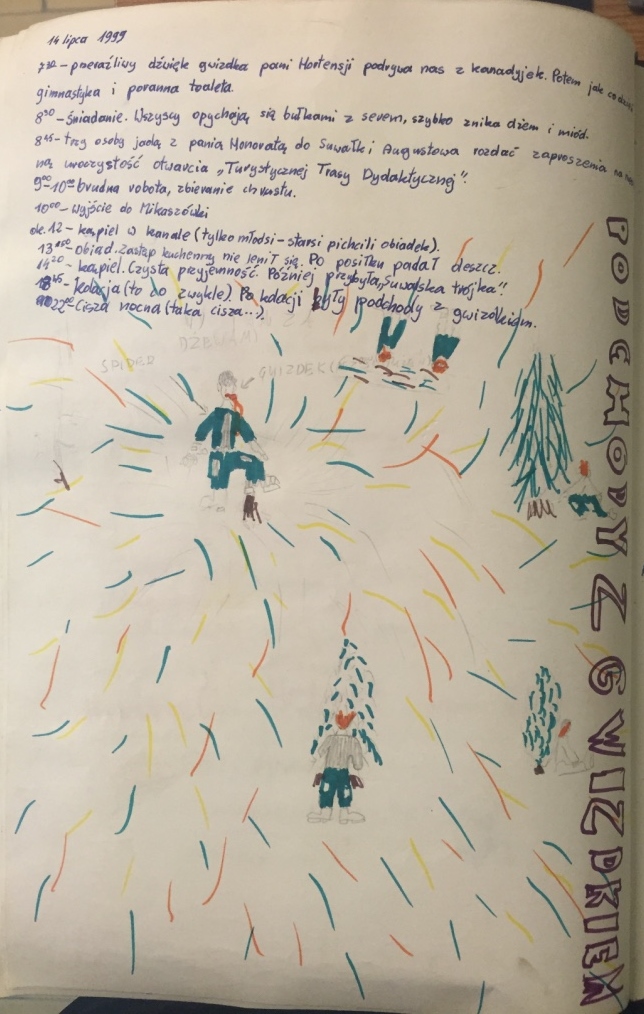 14 lipca 1999
7³⁰ – przeraźliwy dźwięk gwizdka pani Hortensji podrywa nas z kanadyjek. Potem jak co dzień
gimnastyka i poranna toaleta.
8³⁰ – śniadanie. Wszyscy opychają się bułkami z serem, szybko znika dżem i miód.
8⁴⁵ – trzy osoby jadą z panią Honoratą do Suwałk i Augustowa rozdać zaproszenia na
na uroczystość otwarcia „Turystycznej Trasy Dydaktycznej".
9⁰⁰-10⁰⁰ brudna robota, zbieranie chrustu.
10⁰⁰ – Wyjście do Mikaszówki
ok. 12 – kąpiel w kanale (tylko młodsi – starsi pichcili obiadek).
13⁰⁰ – Obiad. Zastęp kuchenny nie lenił się. Po posiłku padał deszcz.
14²⁰ – kąpiel. Czysta przyjemność. Później przybyła „Suwalska trójka"!
18⁴⁵ – kolacja (to co zwykle). Po kolacji były podchody z gwizdkiem.
22⁰⁰ Cisza nocna (taka cisza...).
SPIDER
GWIZDEK
PODCHODY Z GWIZDKIEM